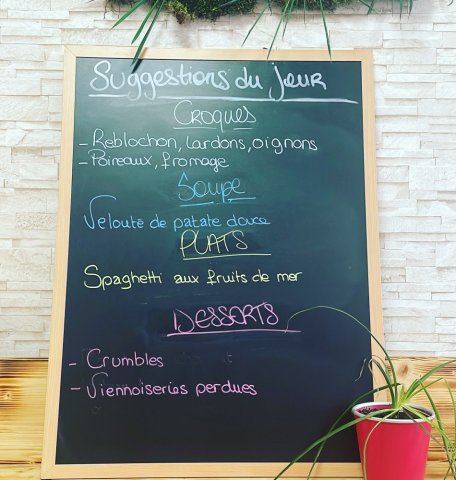 Suggestions du jour
CROQUES
- Reblochon, lardons, oignons
- Poireaux, fromage
Soupe
Velouté de patate douce
PLATS
Spaghetti aux fruits de mer
DESSERTS
- Crumbles
- Viennoiseries perdues